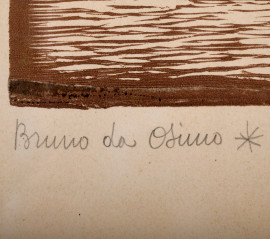 Bruno da Osimo *